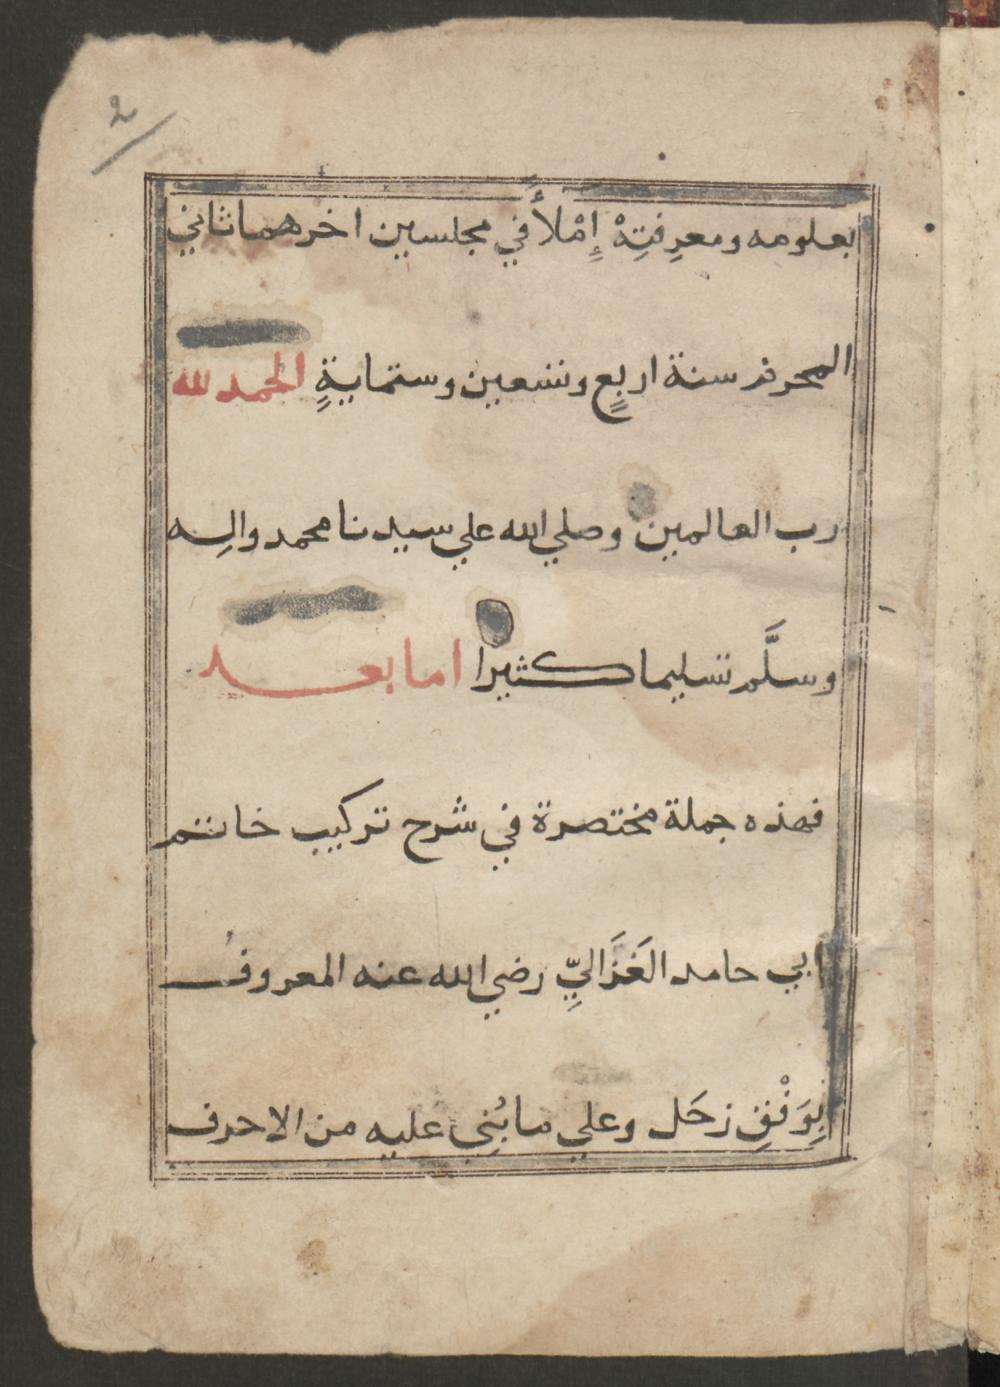 2
بعلومه ومعرِفتِهْ إِمْلأً في مجلسين اخرهما ثاني
المحرم سنة اربعٍ وتسعين وستمايةٍ الحمد لله
رب العالمين وصلي الله علي سيدنا محمد والِه
وسلَّم تسليما كثيرا اما بعد
فهذه جملة مختصرة في شرح تركيب خاتم
ابي حامد الغَزَاليِّ رضي الله عنه المعروفُ
بِوَفْقِ زحَل وعلي ما بُنِي عليه من الاحرف